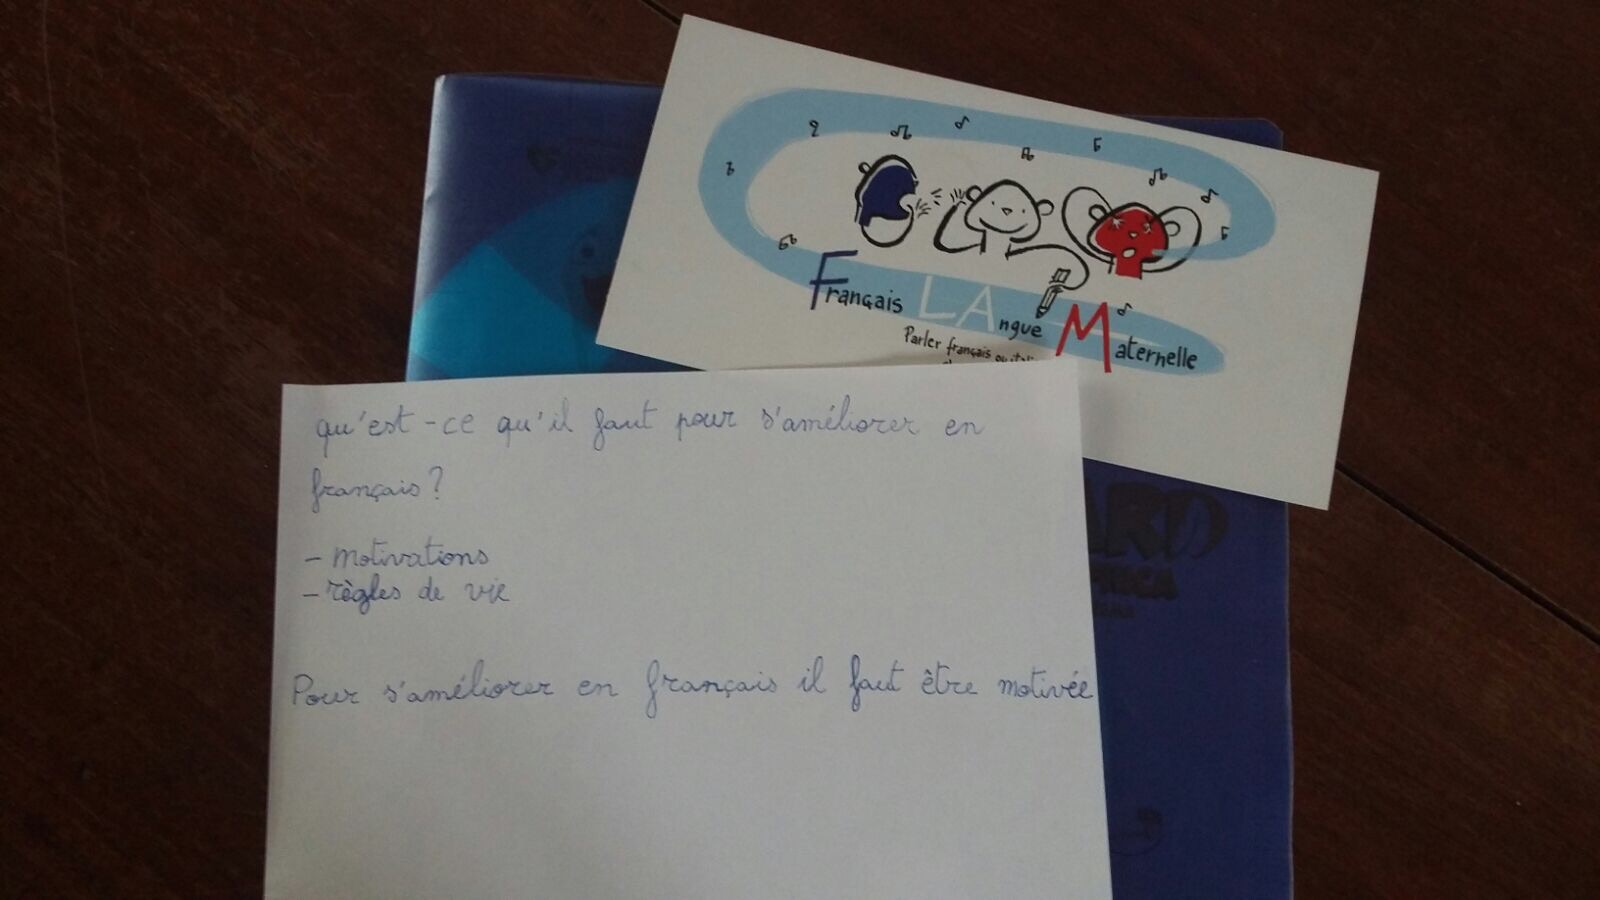 Français LAngue Maternelle
Parler français ou
qu'est-ce qu'il faut pour s'améliorer en
français?
- Motivations
- règles de vie
Pour s'améliorer en français il faut être motivée